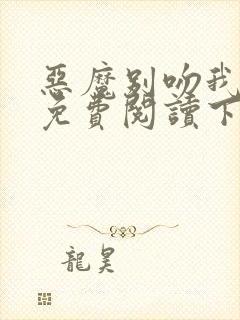 惡魔別吻我
免費閱讀下
龍昊